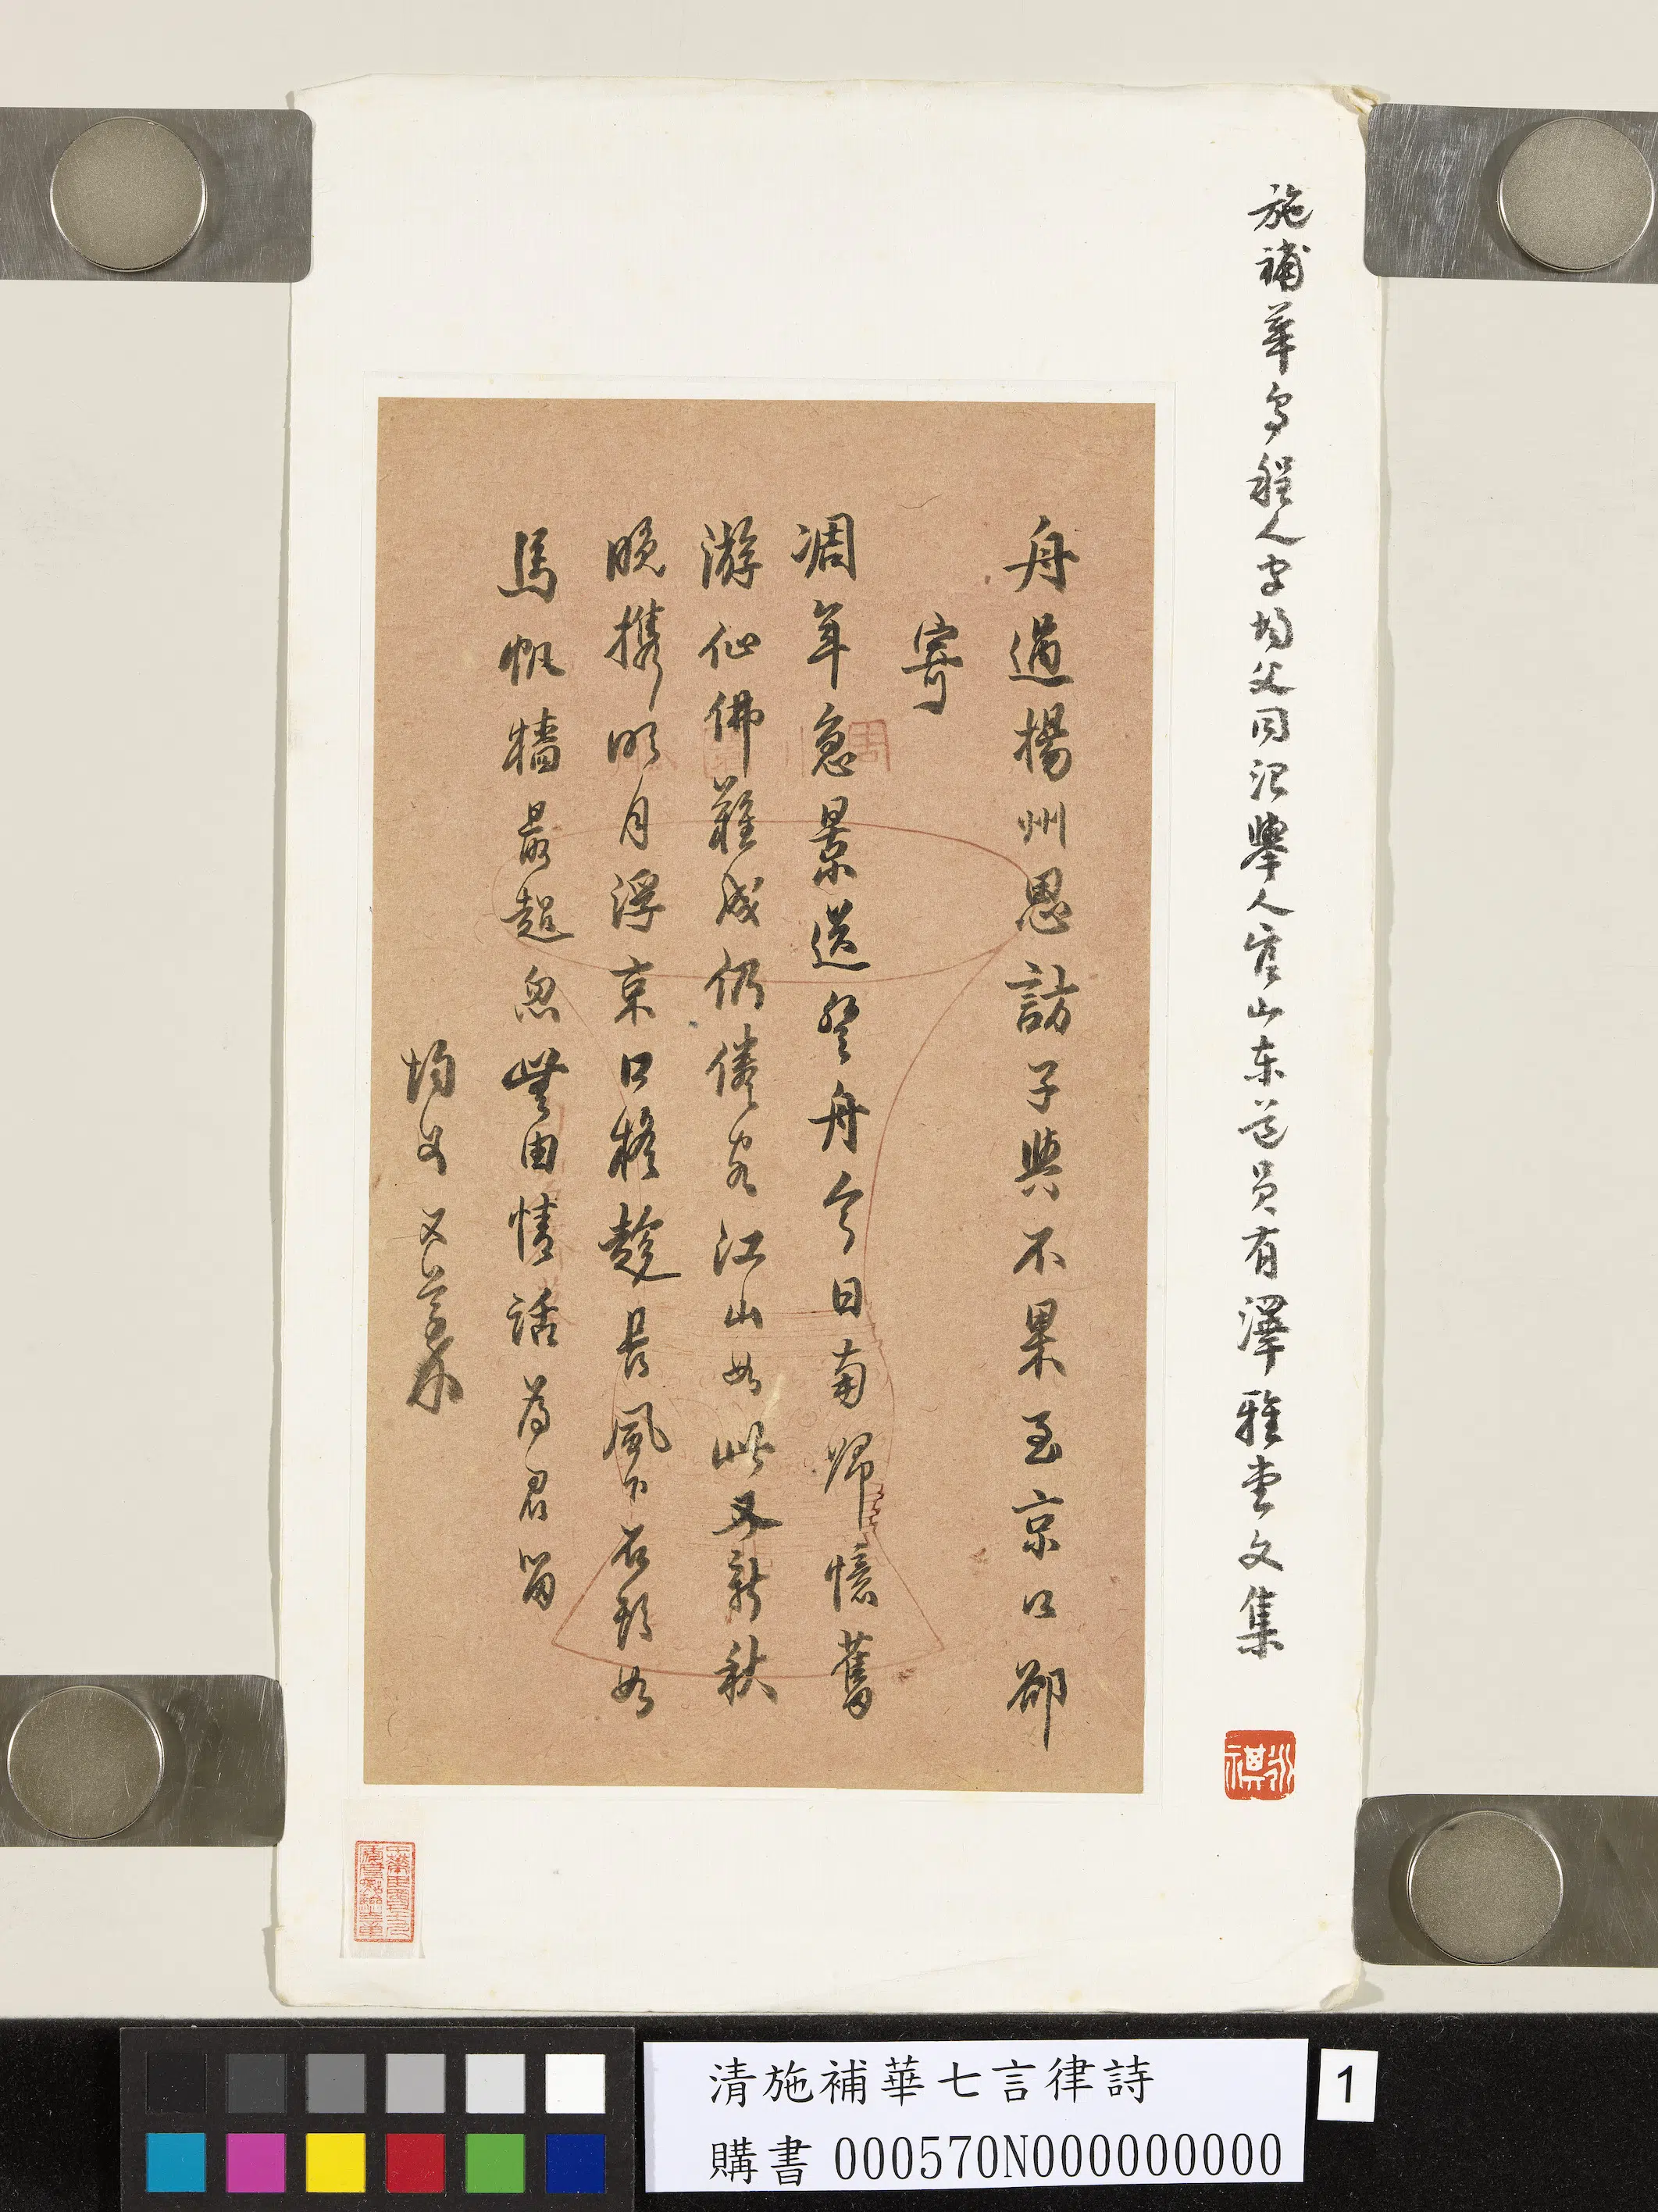 施補華烏程人字均父同治舉人官山东道員有澤雅堂文集
舟過揚州思訪子與不果至京口卻
寄
凋年急景送登舟今日南歸憶舊
游仙佛難成仍倦客江山如此又新秋
晚携明月浮京口擬趁長風下石頭如
馬帆檣最超忽無由情話為君留
均父又草
清施補華七言律詩
購書 000570N000000000
1